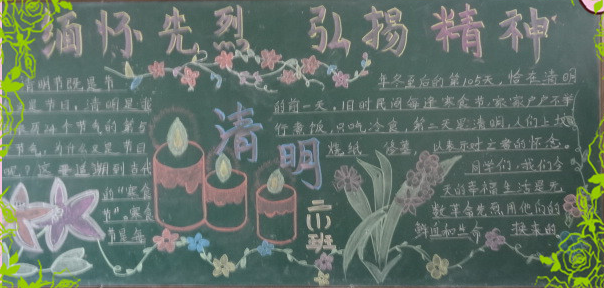 缅怀先烈 弘扬精神
清明
二(1)班
清明节既是节
是节日,清明是我
24个节气的
节气,为什么又是节日
呢?这要追溯到古代
的“寒食
节”,寒食
节是每
年冬至后的第105天,恰在清明
的前一天,旧时民间每逢寒食节,家家户户不举
行煮饭,只吃冷食,第二天是清明,人们上坟
烧纸 以表示对亡者的怀念。
同学们,我们今
天的幸福生活是无
数革命先烈用他们的
鲜血和生命 换来的。